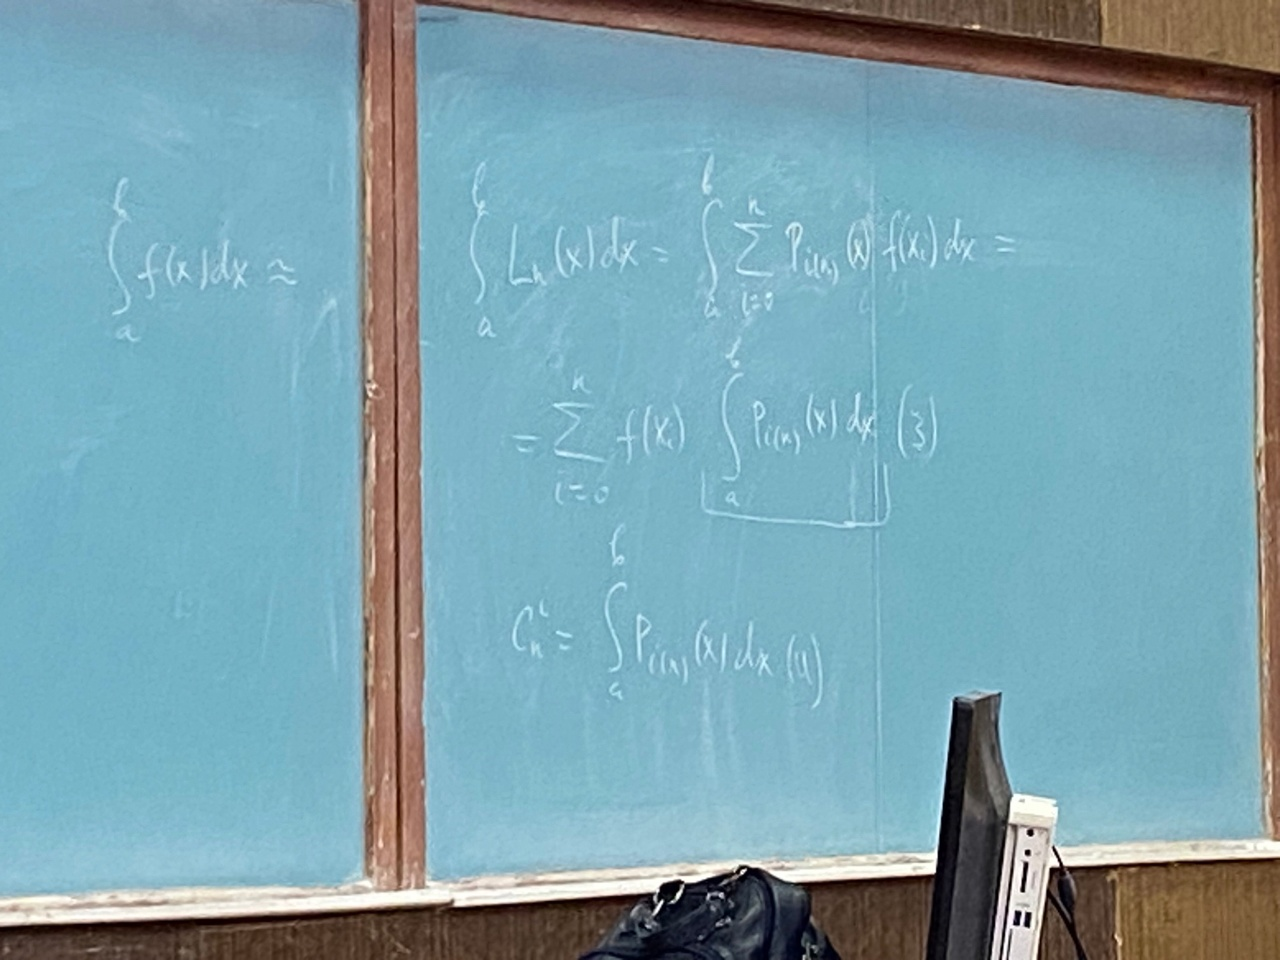 ∫_a^b f(x)dx ≈ ∫_a^b L_n(x)dx = ∫_a^b ∑_{i=0}^n P_{i(n)}(x) f(x_i)dx =
= ∑_{i=0}^n f(x_i) ∫_a^b P_{i(n)}(x)dx (3)
C_n^i = ∫_a^b P_{i(n)}(x)dx (4)